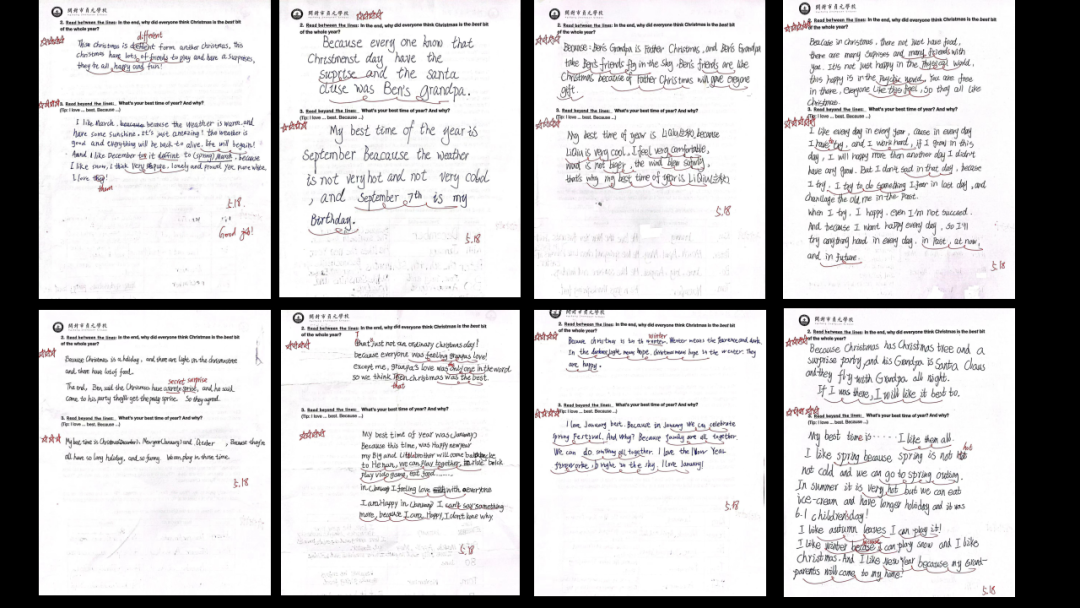 開封市貞元學校
2. Read between the lines: In the end, why did everyone think Christmas is the best bit
of the whole year?
different
This christmas is different form another christmas, this
christmas have lots of friends to play and have a surprises,
they're all happy and fun!
3. Read beyond the lines: What's your best time of the year? And why?
(Tip: I love ... best. Because ...)
I like March, because the weather is warm and
have some sunshine. It's just amazing! the weather is
good and everything will be back to alive. life will begin!
And I like December
I like snow, I think very lovely and
I love
them
5.18
Good job!
開封市貞元學校
2. Read between the lines: In the end, why did everyone think Christmas is the best bit
of the whole year?
Because every one know that
Christmenst day have the
suprise and the santa
cluse was Ben's grandpa.
3. Read beyond the lines: What's your best time of the year? And why?
(Tip: I love ... best. Because ...)
My best time of the year is
September Beacause the weather
is not very hot and not very cold
, and September 7th is my
Birthday.
5.18
開封市貞元學校
2. Read between the lines: In the end, why did everyone think Christmas is the best bit
of the whole year?
Because Ben's Grandpa is Father Christmas, and Ben's Grandpa
take Ben's friends fly in the sky. Ben's friends are like
Christmas because of Father Christmas will give everyone
gift.
3. Read beyond the lines: What's your best time of the year? And why?
(Tip: I love ... best. Because ...)
My best time of year is because
is very cool. I feel very comfortable,
that's why my best time of year is
5.18
開封市貞元學校
2. Read between the lines: In the end, why did everyone think Christmas is the best bit
of the whole year?
Because in christmas, there not just have food,
there are many surprises and many friends with
you. It's not just happy in the physical world,
this happy is in the psychic world. You are free
in there, everyone like this feel, so they all like
Christmas.
3. Read beyond the lines: What's your best time of the year? And why?
(Tip: I love ... best. Because ...)
I like every day in every year, cause in every day
I have try, and I work hard, if I grow in this
day, I will happy more than another day I didn't
have any grow. But I don't sad in that day, because
I try. I try to do something I fear in last day, and
challage the old me in the past.
When I try. I happy. even I'm not succeed.
And because I want happy every day, so I'll
try anything hard in every day. in past, at now,
and in future.
5.18
開封市貞元學校
2. Read between the lines: In the end, why did everyone think Christmas is the best bit
of the whole year?
Because Christmas is a holiday, and there are light on the christmastree
and there have lots of food.
secret surprise
The end, Ben said the Christmas have and he said
come to his party they'll get the So they agreed.
3. Read beyond the lines: What's your best time of the year? And why?
(Tip: I love ... best. Because ...)
My love time is Christmas and October, Because they're
all have so long holiday, and so funny. We can play in those time.
5.18
開封市貞元學校
2. Read between the lines: In the end, why did everyone think Christmas is the best bit
of the whole year?
that just not an ordinary christmas day!
because everyone was feeling grandpa's love!
except me, grandpa's love was only one in the word
so we think christmas was the best.
that
3. Read beyond the lines: What's your best time of the year? And why?
(Tip: I love ... best. Because ...)
My best time of year was January
Because this time, was Happy new year
my Big and Little brother will come back
to Henan, we can play together,
play video game, eat food
in January I feeling love with everyone
I am Happy in January I can't say something
more, because I am Happy, I don't know why.
5.18
2. Read between the lines: In the end, why did everyone think Christmas is the best bit
of the whole year?
winter
Because christmas is in the Winter means the and dark.
In the more hope. christmas more hope in the winter. They
are happy.
3. Read beyond the lines: What's your best time of the year? And why?
(Tip: I love ... best. Because ...)
I love January best. Because in January we can celebrate
Spring Festival. And why? Because family are all together.
We can do anything all together. I love the New Year
bright in the sky. I love January!
5.18
開封市貞元學校
2. Read between the lines: In the end, why did everyone think Christmas is the best bit
of the whole year?
Because Christmas has Christmas tree and a
surprise party and his Grandpa is Santa Claus
and they fly with Grandpa all night.
If I was there, I will like it best to.
3. Read beyond the lines: What's your best time of the year? And why?
(Tip: I love ... best. Because ...)
My best time is ······ I like them all.
I like spring because spring is not hot
not cold and we can go to spring outing.
In summer it is very hot but we can eat
ice-cream and have longer holiday and it was
6.1 childrensday!
I like autumn leaves I can play it!
I like winter because I can play snow and I like
christmas. And I like New Year because my grand-
parents will come to my home.
5.18